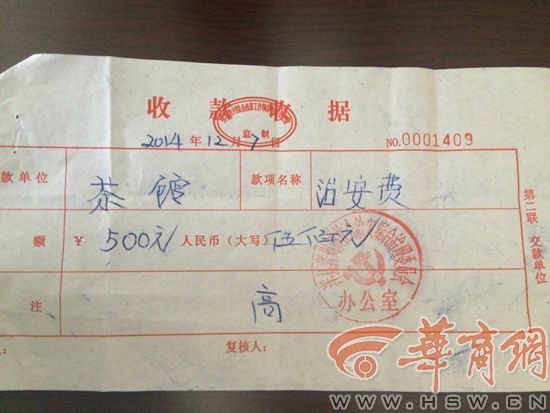 收款收据
监制
2014年12月7日 NO.0001409
款单位 茶馆 款项名称 治安费
额 ¥ 500元 人民币(大写) 伍佰元
第二联 交款单位
办公室
注 高
复核人:
华商网
WWW.HSW.CN